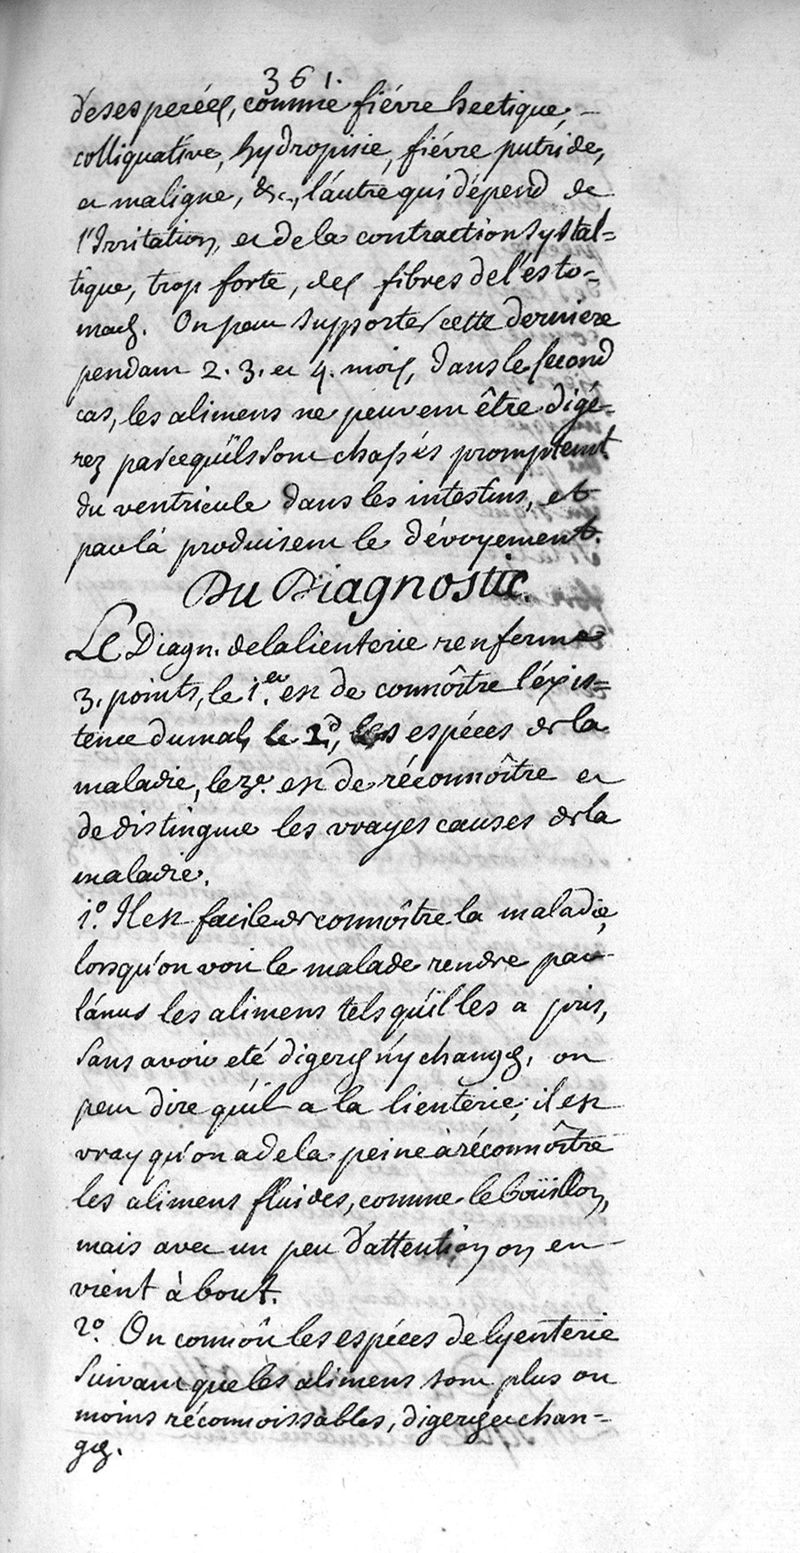 361.
désesperées, comme fiévre hectique,
colliquative, hydropisie, fiévre putride,
et maligne, &c, l'autre qui dépend de
l'Irritation, et de la contraction systal=
tique, trop forte, des fibres de l'esto-
mach. On peut supporter cette derniere
pendant 2. 3. et 4. mois, dans le second
cas, les alimens ne peuvent être digé-
rez parcequ'ils sont chassés promptemt.
du ventricule dans les intestins, et
par là produisent le dévoyement.
Du Diagnostic.
Le Diagn. de la lienterie renferme
3. points, le 1.er est de connôitre l'éxis=
tence du mal, le 2.d, les espéces de la
maladie, le 3e. est de réconnôitre et
de distinguer les vrayes causes de la
maladie.
1.° Il est facile de connôitre la maladie,
lorsqu'on voit le malade rendre par
l'anus les alimens tels qu'il les a pris,
sans avoir eté digerés n'y changés, on
peut dire qu'il a la lienterie; il est
vray qu'on a de la peine a réconnôitre
les alimens fluides, comme le boüillon,
mais avec un peu d'attention on en
vient à bout.
2.° On connôit les espéces de lyenterie
suivant que les alimens sont plus ou
moins réconnoissables, digerés et chan=
gés.